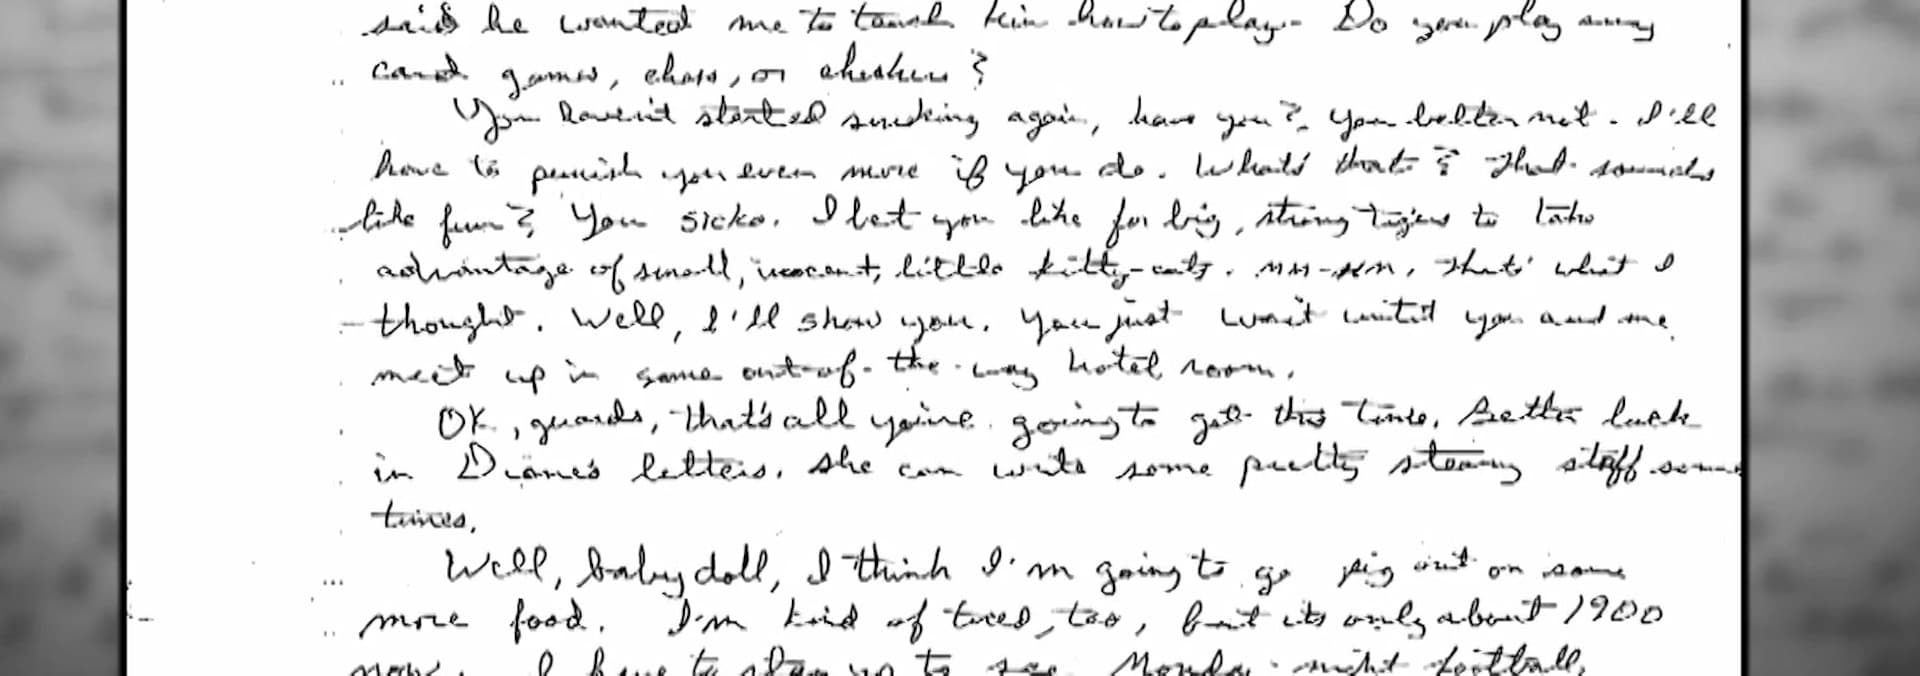 said he wanted me to teach him how to play. Do you play any
card games, chess, or checkers?
You haven't started smoking again, have you? You better not. I'll
have to punish you even more if you do. What's that? That sounds
like fun? You sicko. I bet you like for big, strong tigers to take
advantage of small, inocent, little kitty-cats. MM-HM, that's what I
thought. Well, I'll show you. You just wait until you and me
meet up in some out-of-the-way hotel room.
OK, guards, that's all you're going to get this time. Better luck
in Diane's letters. She can write some pretty steamy stuff some-
times.
Well, baby doll, I think I'm going to go pig out on some
more food. I'm kind of tired, too, but its only about 1900
now. I have to stay up to see Monday night football.